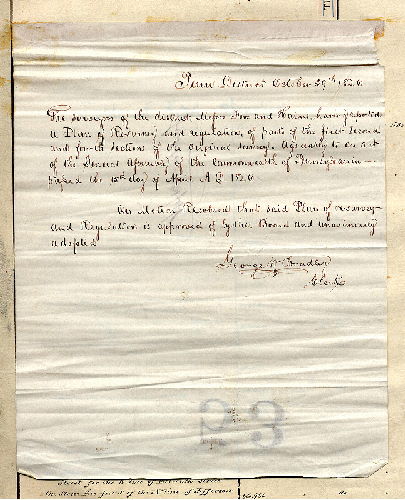 Penn District October 29th 1826
The surveyors of the district, Messrs. and Haines, have reported
a Plan of Resurvey and regulation, of parts of the first second
and fourth sections of the original survey. Agreeably to an act
of the General Assembly of the Commonwealth of Pennsylvania
passed the 15th day of April A D 1826.
On Motion Resolved that said Plan of resurvey
and Regulation is approved of by this Board and unanimously
adopted
George
Clerk
23